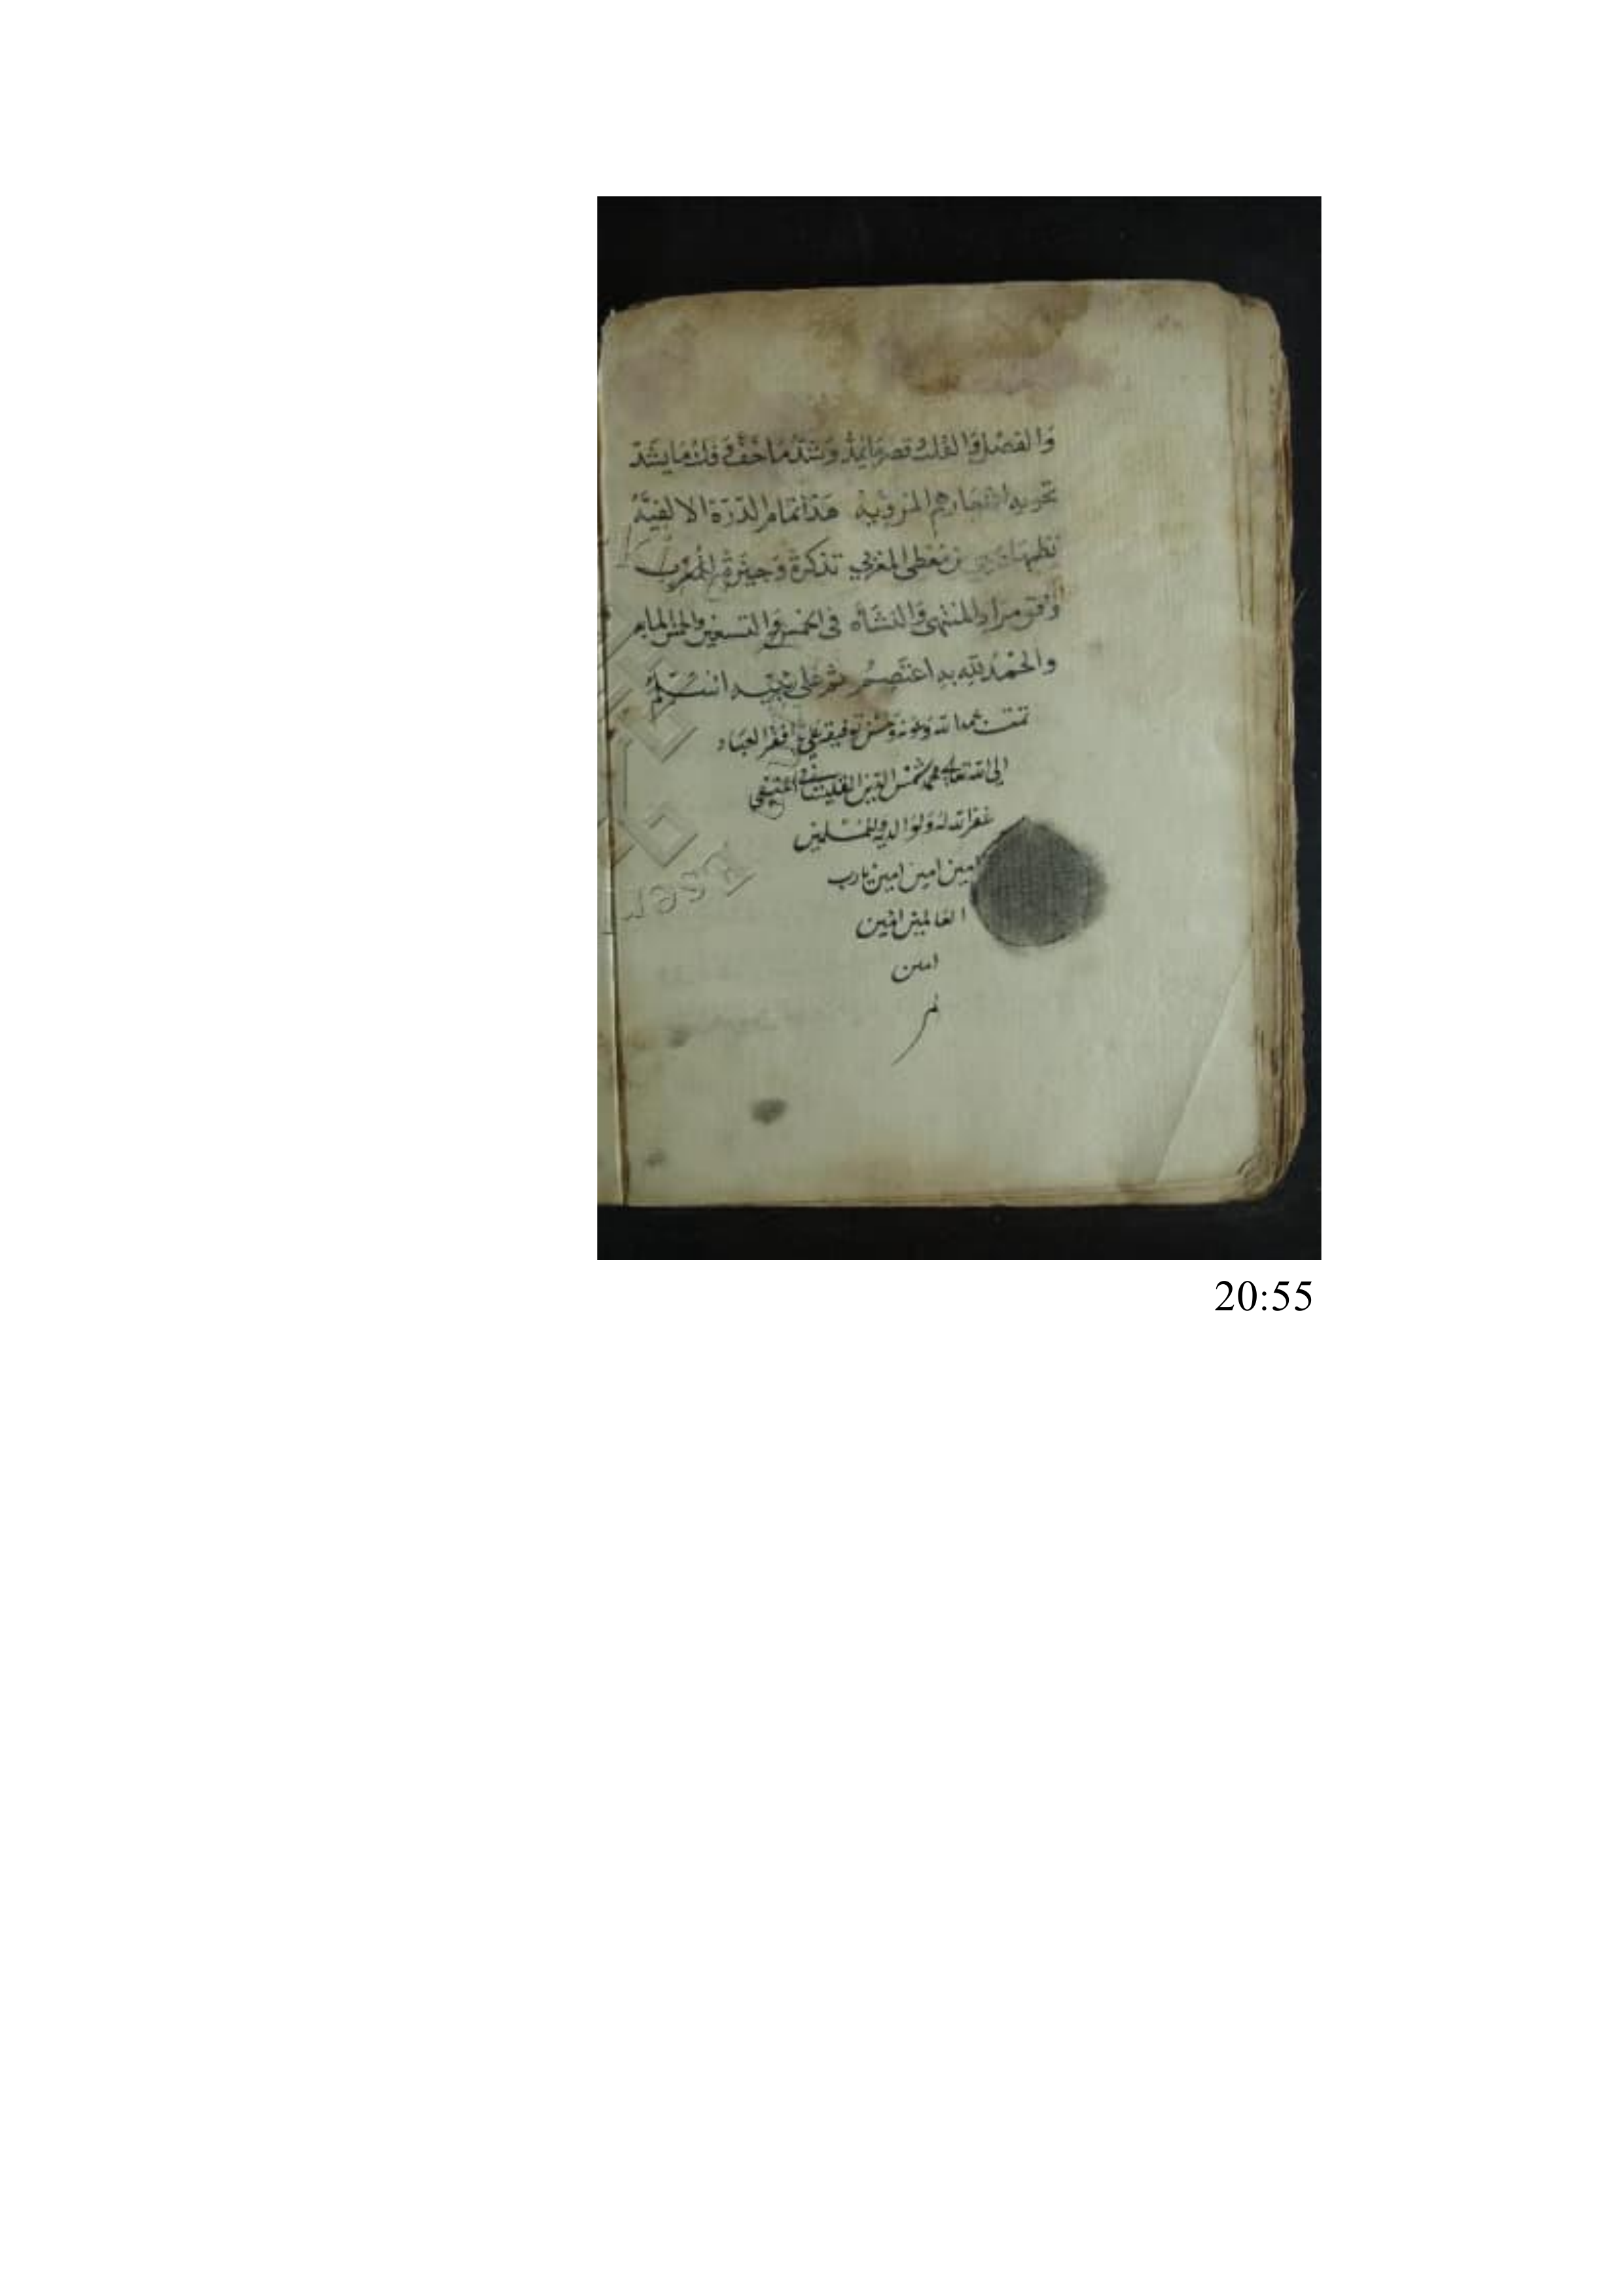 والفصل والفك وقصر ما يمد وشد ما خف وفك ما يشد
المرويه هذا تمام الدرة الالفيه
نظمها بن معطي المغربي تذكرة وجيزة للمعرب
وفق مراد المنتهى والنشاه في الخمس والتسعين والخمس المايه
والحمد لله به اعتصم ثم على نبيه اسلم
تمت بحمد الله وعونه وحسن توفيقه على يد افقر العباد
الى الله تعالى محمد شمس الدين
غفر الله له ولوالديه وللمسلمين
امين امين امين يارب
العالمين امين
امين
تم
20:55